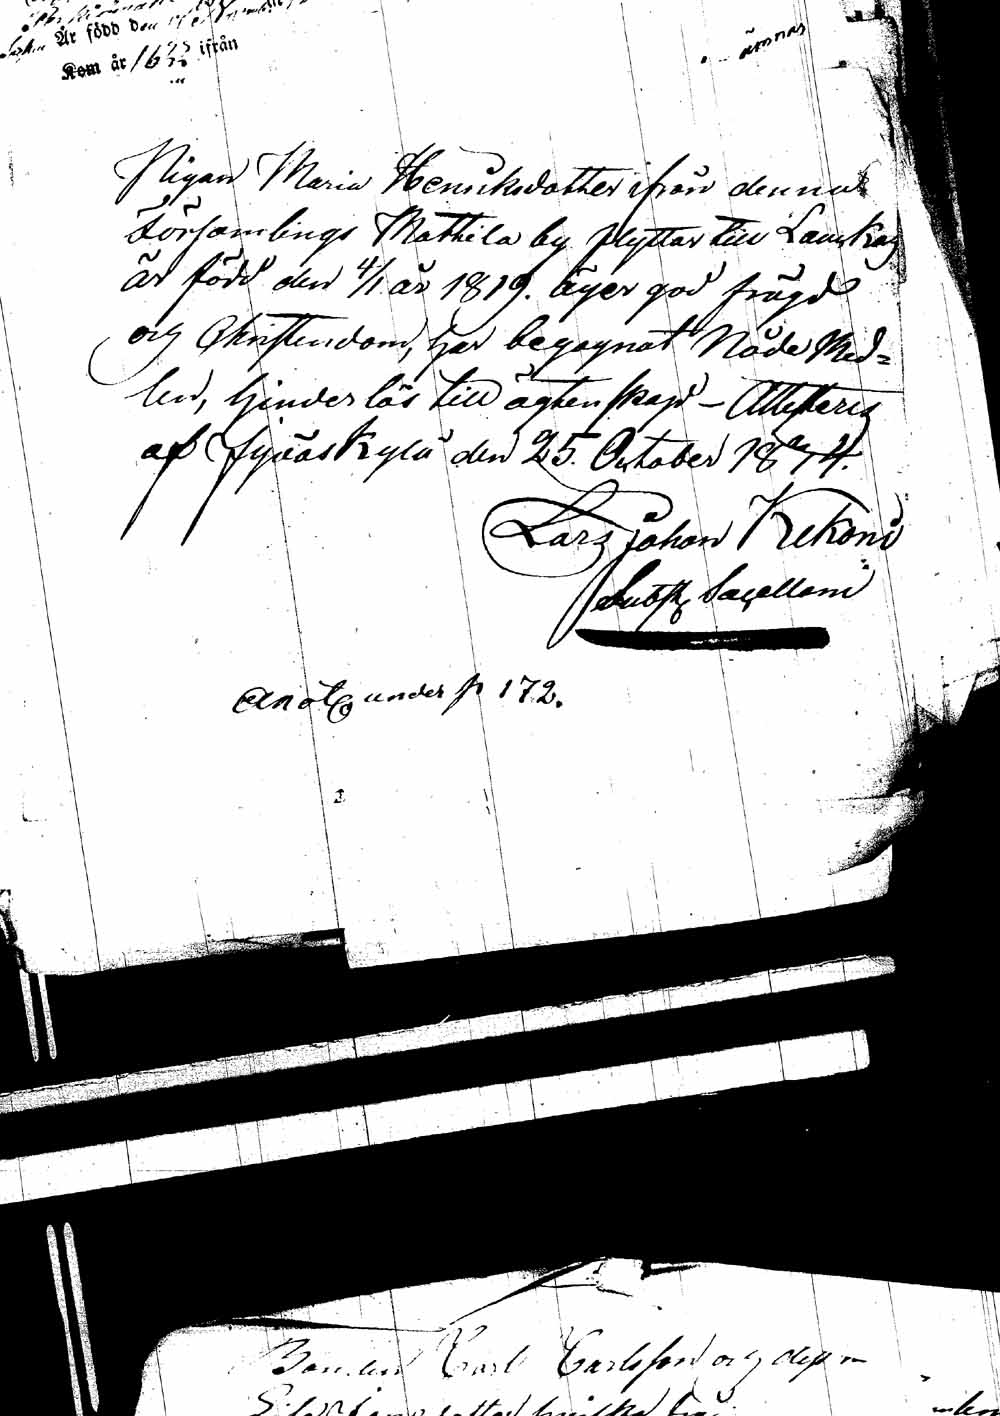 Är född den
Kom år 16 ifrån
ämnas
Pigan Maria Henriksdotter ifrån denna
Församlings Mattila by flyttar till Laukas
är född den 4/1 år 1819. äger god frägd
och Christendom, har begagnat Nåde Med=
len, hinderlös till ägtenskap – Attesteras
af Jyväskylä den 25. October 1844.
Lars Johan Kekoni
Sacellani
under p 172.
Bonden Carl Carlsson och dess